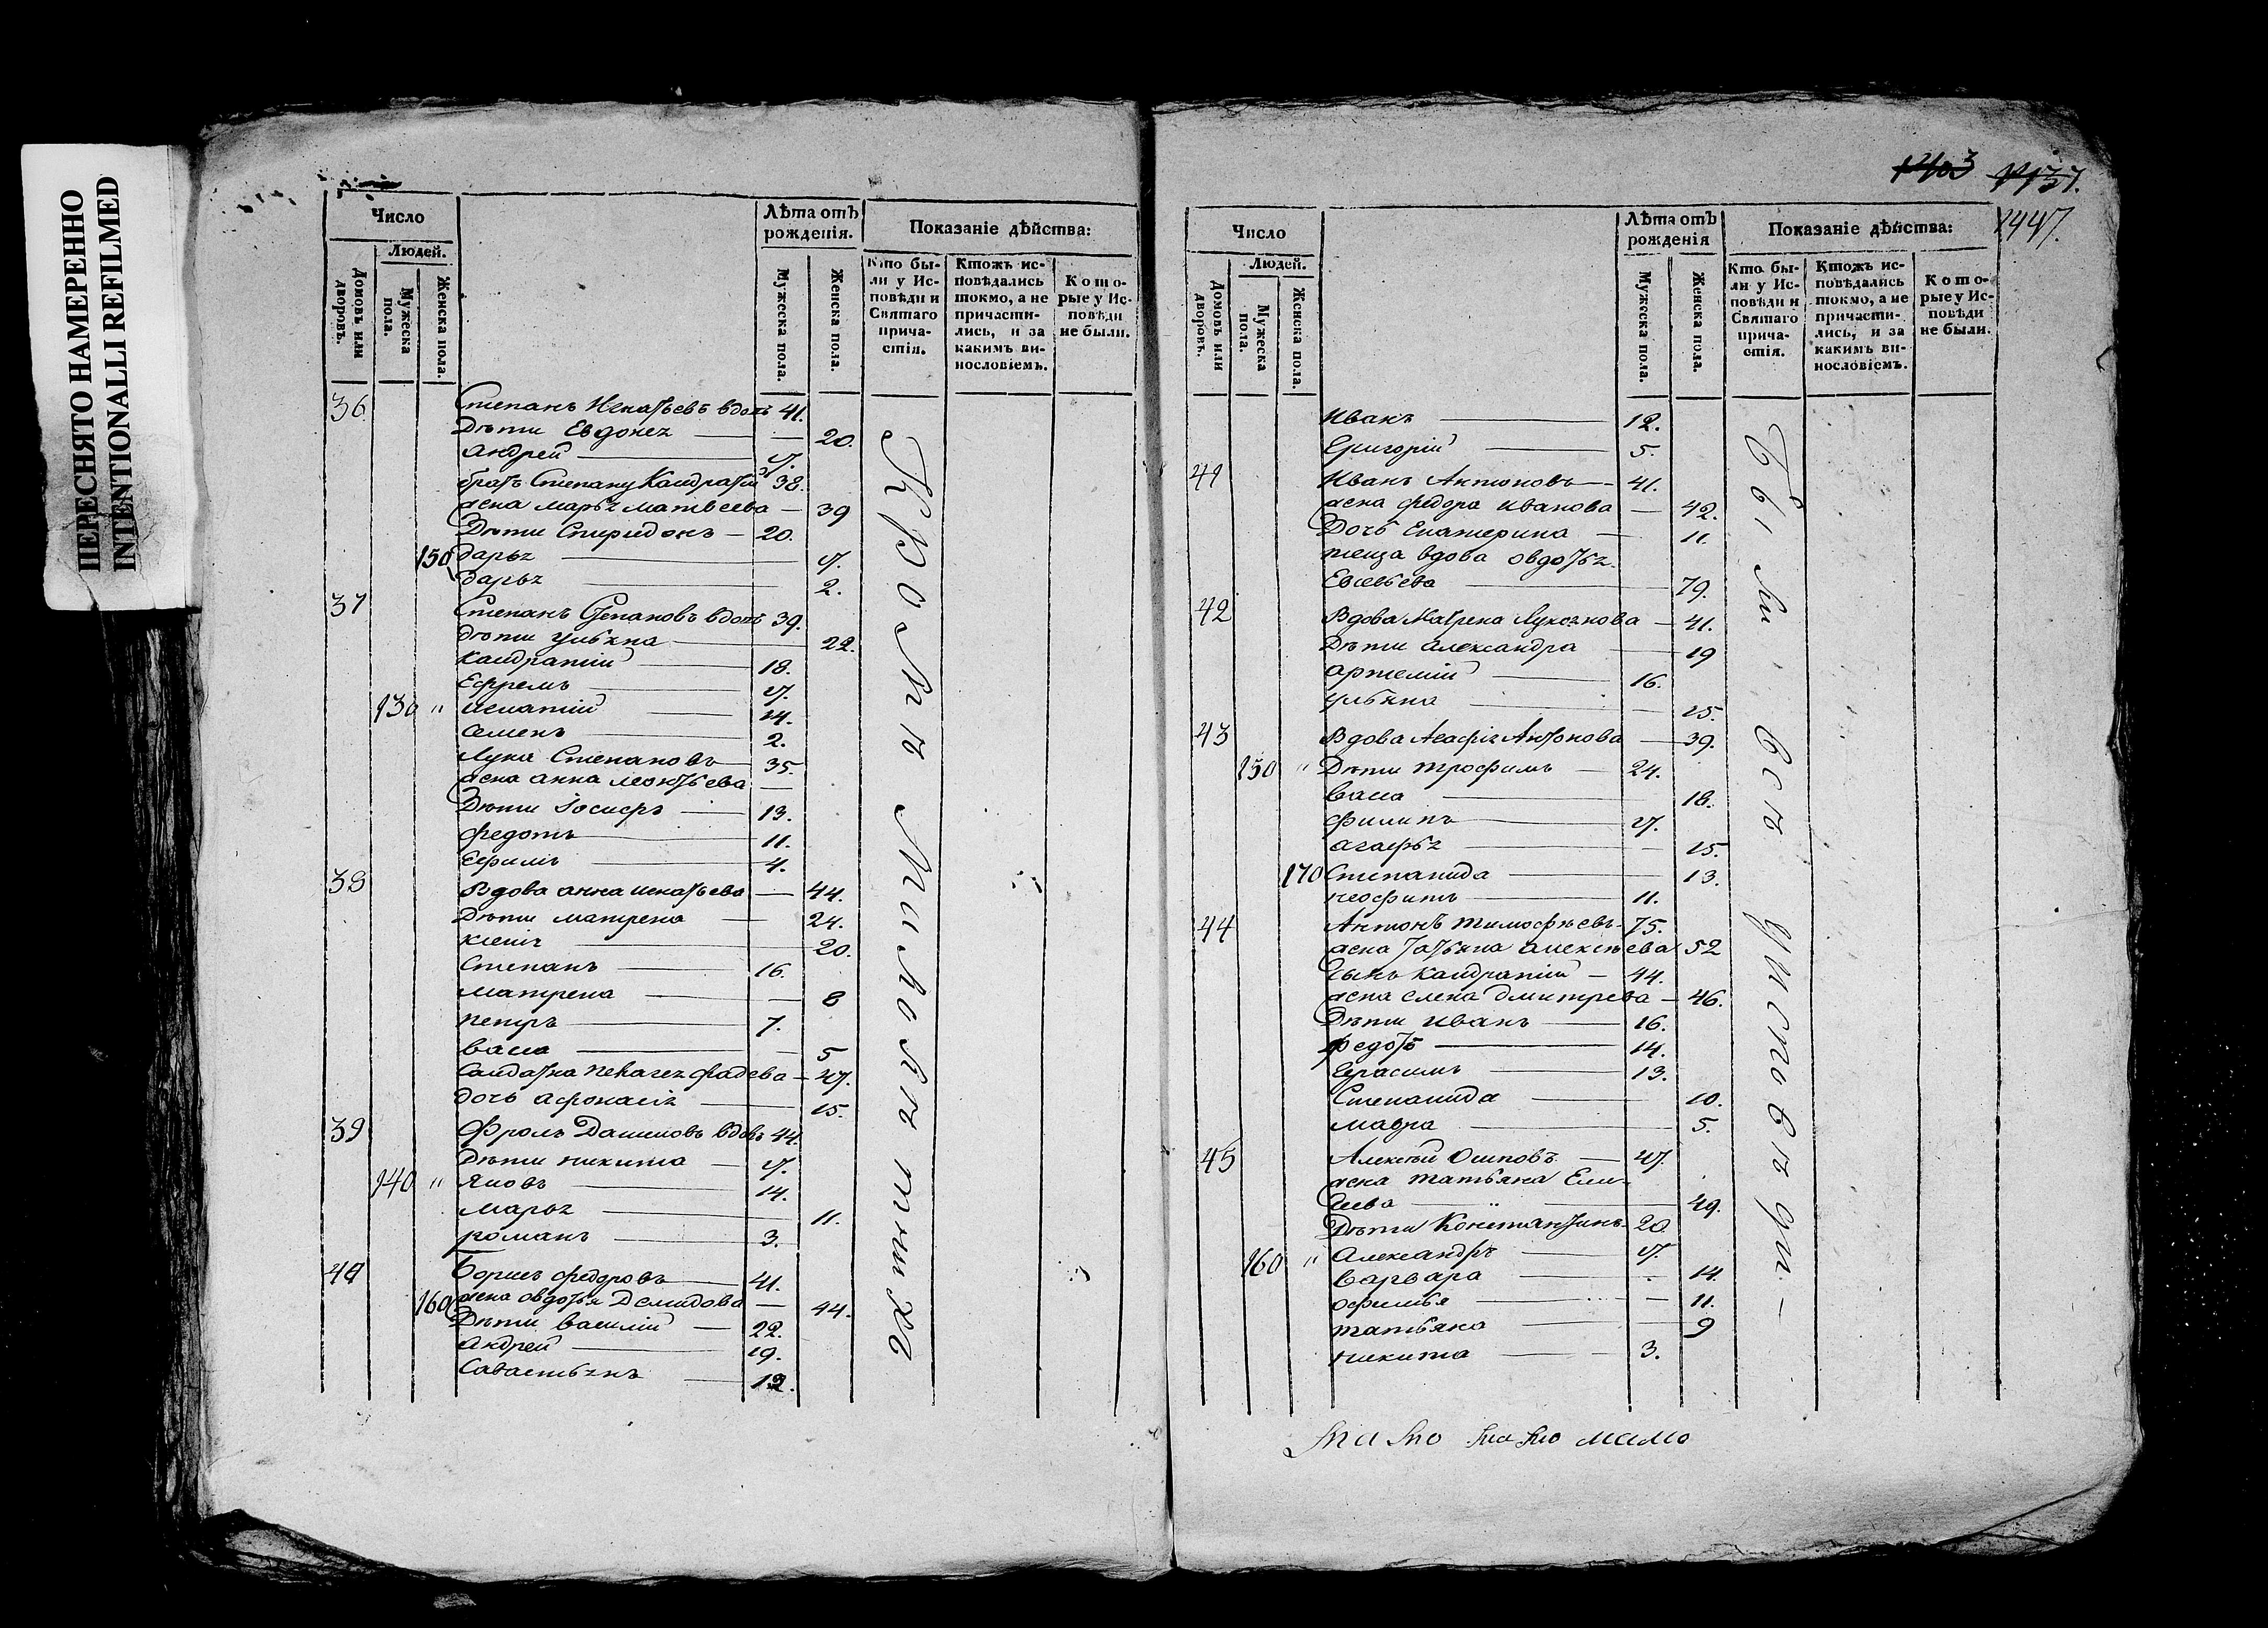 ПЕРЕСНЯТО НАМЕРЕННО
INTENTIONALLI REFILMED
Число
Людей.
Домовъ или дворовъ.
Мужеска пола.
Женска пола.
Лѣта отъ рожденія.
Мужеска пола.
Женска пола.
Показаніе дѣйства:
Кто были у Исповѣди и Святаго причастія.
Ктожъ исповѣдались токмо, а не причастились, и за какимъ винословіемъ.
Которые у Исповѣди не были.
36 Степанъ Игнатьевъ вдовъ 41.
Дѣти Евдокея — 20.
Андрей — 17.
братъ Степану Кандратій 38.
жена марья матвеева — 39
Дѣти Спиридонъ — 20.
150 дарья — 17.
дарья — 2.
37 Степанъ Степановъ вдовъ 39.
дѣти ульяна — 22.
Кандратій — 18.
Ефремъ — 17.
130 " игнатій — 14.
Семенъ — 2.
Лука Степановъ — 35.
жена анна леонтьева —
Дѣти Іосифъ — 13.
федотъ — 11.
Ефимъ — 4.
38 Вдова анна игнатьева — 44.
Дѣти матрена — 24.
Ксенія — 20.
Степанъ — 16.
матрена — 8
петръ — 7.
васса — 5
Салдатка пелагея фадеева — 47.
дочь афонасія — 15.
39 Фролъ Даниловъ вдовъ 44.
Дѣти никита — 17.
140 " Яковъ — 14.
марья — 11.
романъ — 3.
40 Борисъ федоровъ — 41.
160 жена овдотья Демидова — 44.
Дѣти василій — 22.
андрей — 19.
Савастьянъ — 12.
1403 1437.
1447.
Число
Людей.
Домовъ или дворовъ.
Мужеска пола.
Женска пола.
Лѣта отъ рожденія
Мужеска пола.
Женска пола.
Показаніе дѣйства:
Кто были у Исповѣди и Святаго причастія.
Ктожъ исповѣдались токмо, а не причастились, и за какимъ винословіемъ.
Которые у Исповѣди не были.
Иванъ — 12.
Григорій — 5.
41 Иванъ Антоновъ — 41.
жена федора иванова — 42.
Дочь Екатерина — 11.
теща вдова овдотья
Евсевьева — 79.
42 Вдова Матрена Лукоянова — 41.
Дѣти александра — 19
артемій — 16.
ульяна — 15.
43 Вдова Агафія Антонова — 39.
150 " Дѣти трофимъ — 24.
васса — 18.
филипъ — 17.
агафья — 15.
170 Степанида — 13.
неофитъ — 11.
44 Антонъ тимофѣевъ — 75.
жена татьяна алексѣева 52
сынъ Кандратій — 44.
жена елена дмитрева — 46.
Дѣти иванъ — 16.
федотъ — 14.
Герасимъ — 13.
Степанида — 10.
мавра — 5.
45 Алексѣй Осиповъ — 47.
жена татьяна Ели-
сеева — 49.
Дѣти Константинъ — 20.
160 " Александръ — 17.
варвара — 14.
офимья — 11.
татьяна — 9
никита — 3.
Были